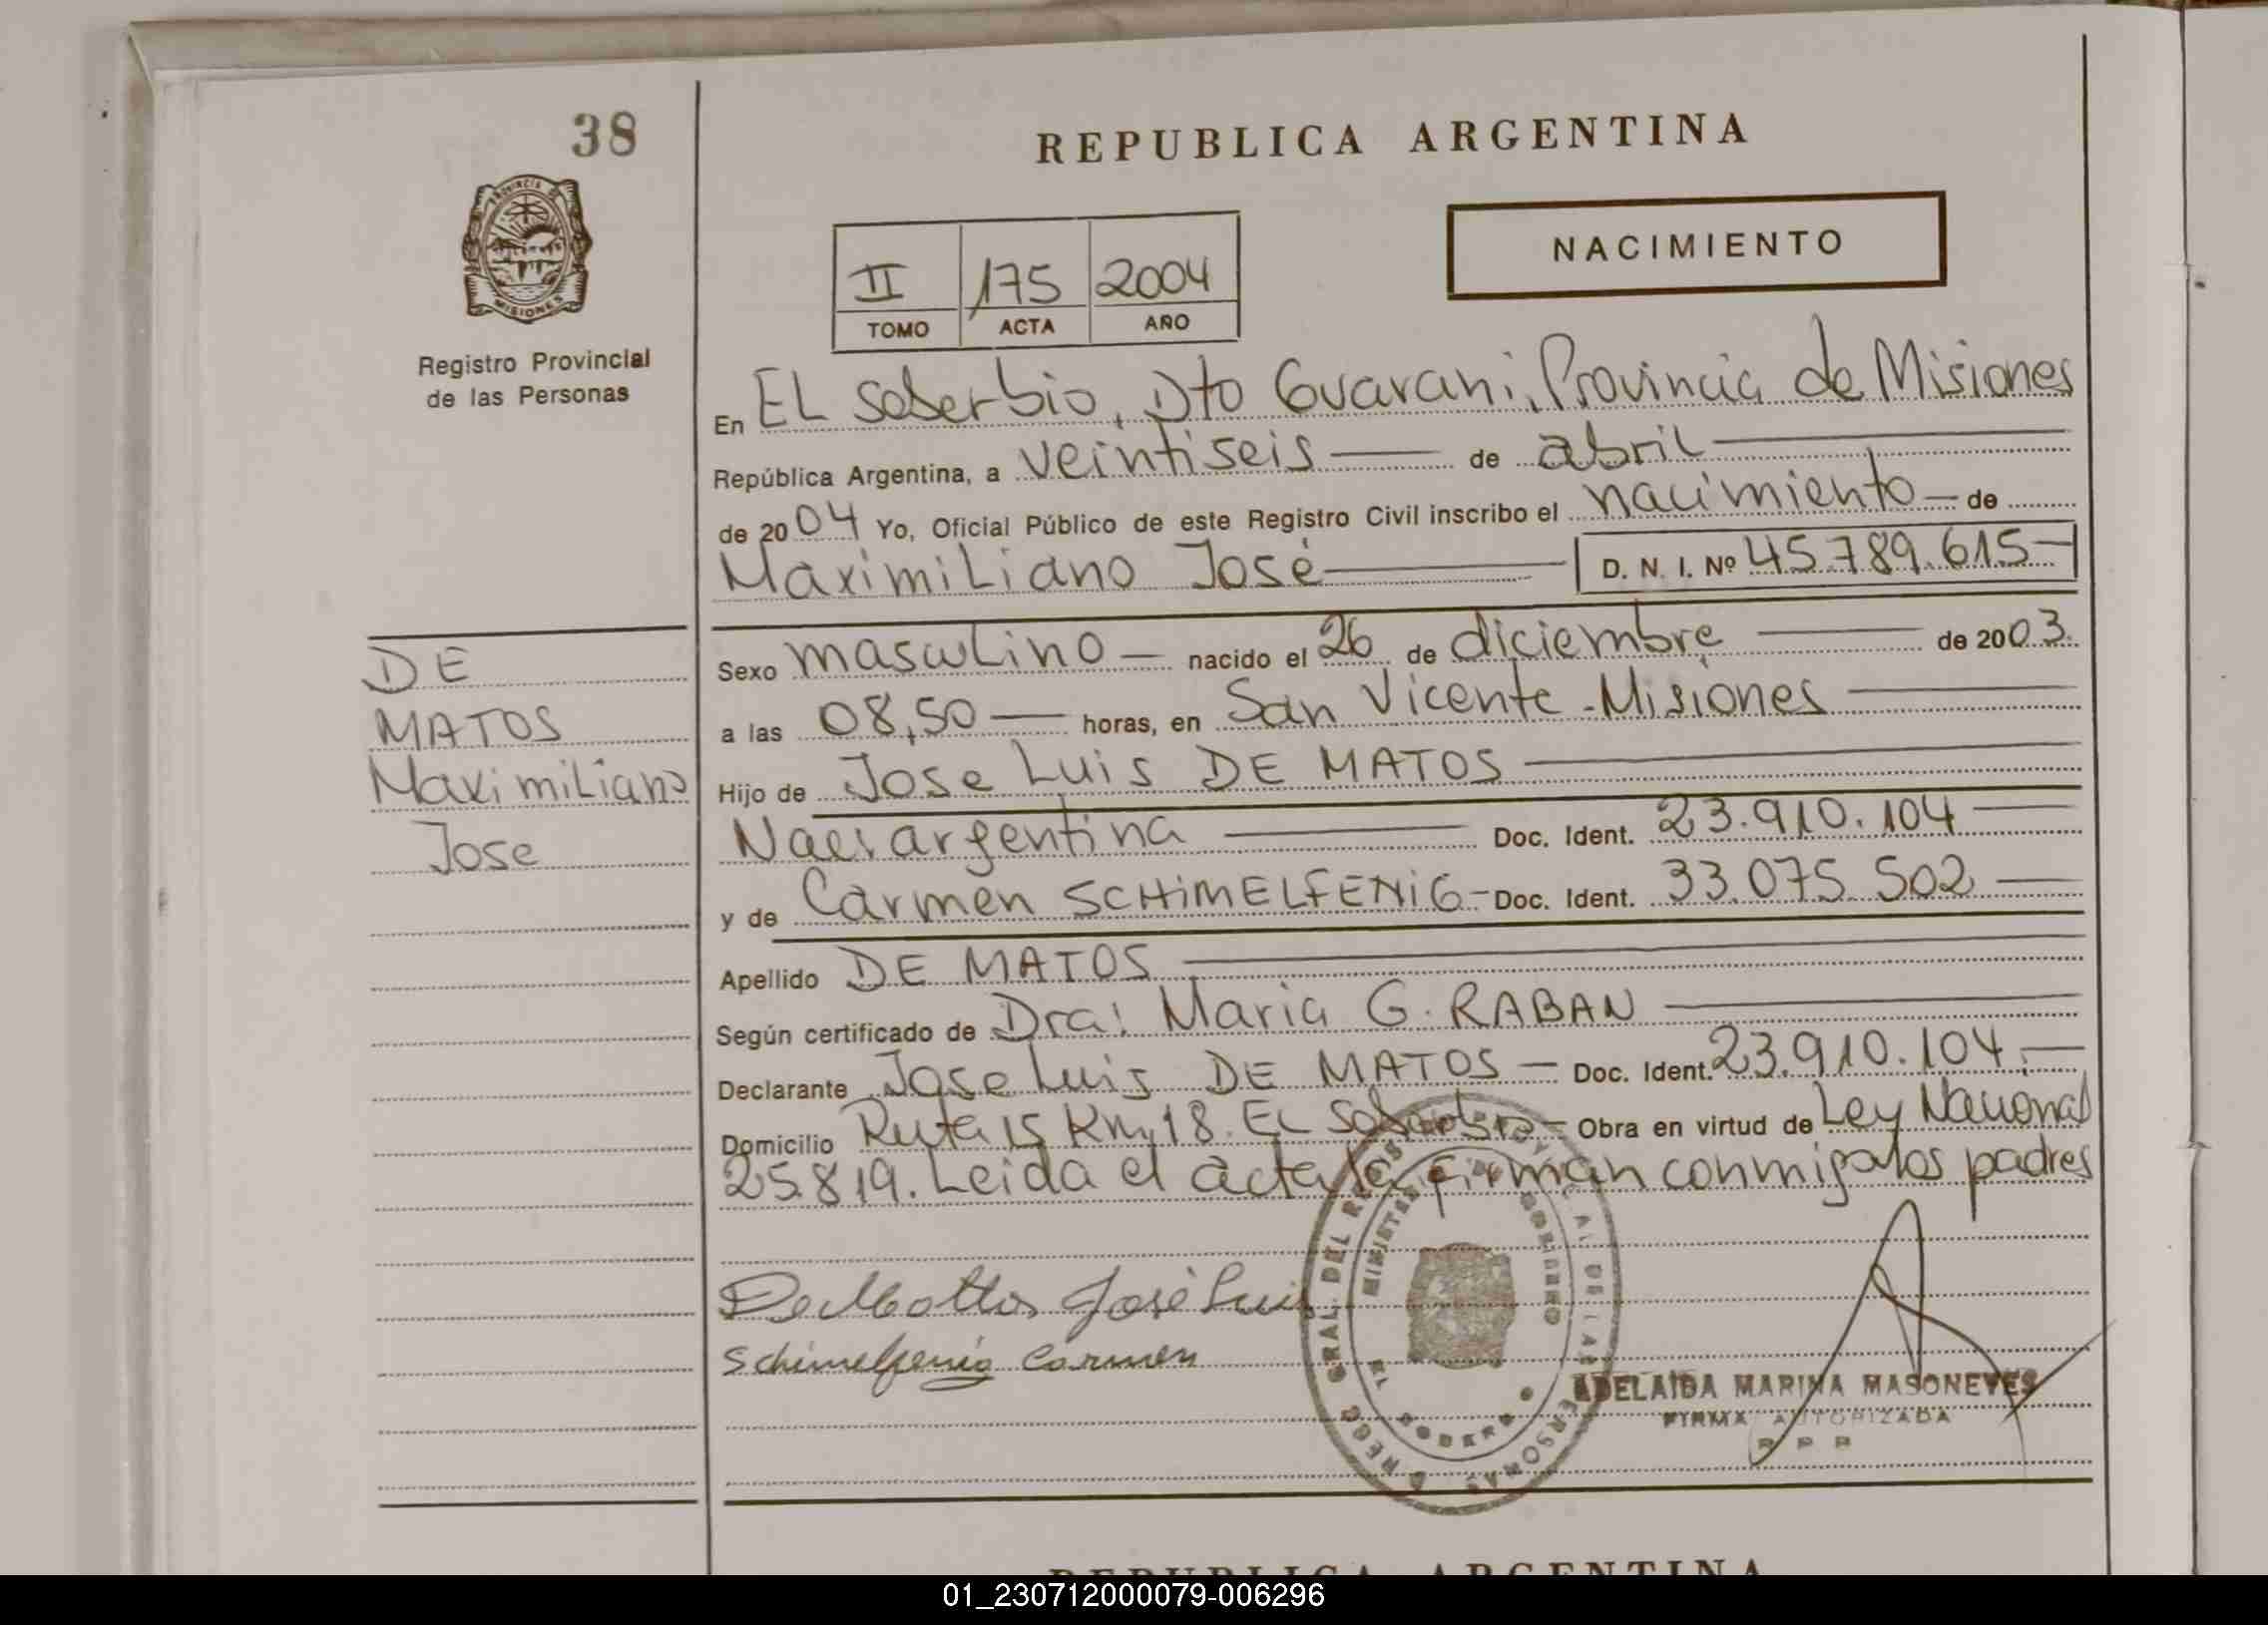 38
REPUBLICA ARGENTINA
NACIMIENTO
II 175 2004
TOMO ACTA AÑO
PROVINCIA DE
MISIONES
Registro Provincial
de las Personas
En EL Soberbio, Dto Guarani, Provincia de Misiones
República Argentina, a veintiseis de abril
de 2004 Yo, Oficial Público de este Registro Civil inscribo el nacimiento de
Maximiliano José D. N. I. Nº 45.789.615
DE
MATOS
Maximiliano
Jose
Sexo masculino nacido el 26 de diciembre de 2003.
a las 08,50 horas, en San Vicente - Misiones
Hijo de Jose Luis DE MATOS
Nac. argentina Doc. Ident. 23.910.104
y de Carmen SCHIMELFENIG - Doc. Ident. 33.075.502
Apellido DE MATOS
Según certificado de Dra: Maria G. RABAN
Declarante Jose Luis DE MATOS Doc. Ident. 23.910.104.
Domicilio Ruta 15 Km 18. EL Soberbio - Obra en virtud de Ley Nacional
25.819. Leida el acta la firman conmigo los padres
De Mattos José Luis
Schimelfenig Carmen
ADELAIDA MARINA MASONEVES
FIRMA AUTORIZADA
R P P
REPUBLICA ARGENTINA
01_230712000079-006296